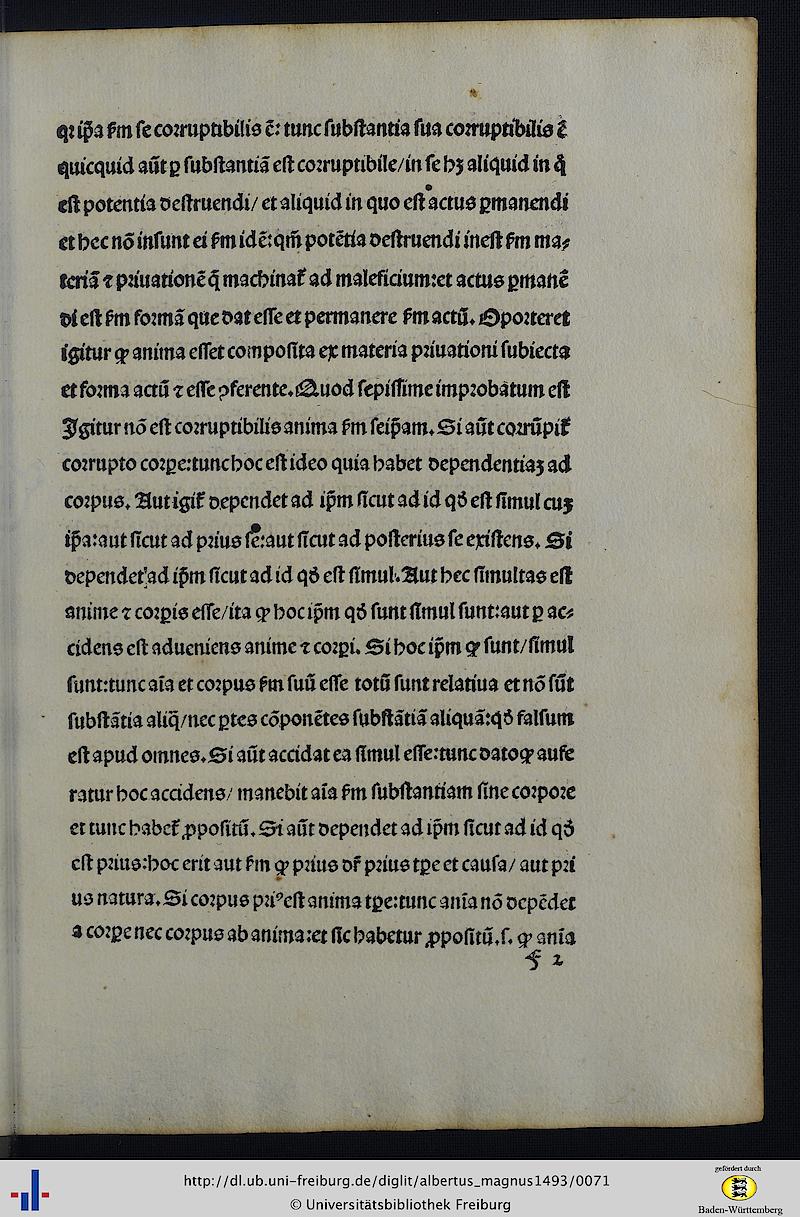 qꝛ ip̄a ẜm ſe coꝛruptibilis ē: tunc ſubſtantia ſua coꝛruptibilis ē
quicquid aūt ꝑ ſubſtantiā eſt coꝛruptibile/in ſe hꝫ aliquid in q̄
eſt potentia deſtruendi/ et aliquid in quo eſt actus ꝑmanendi
et hec nō inſunt ei ẜm idē: qm̄ potētia deſtruendi ineſt ẜm ma⸗
teriā ⁊ pꝛiuationē q̄ machinat᷑ ad maleficium:et actus ꝑmanē
di eſt ẜm foꝛmā que dat eſſe et permanere ẜm actū. Opoꝛteret
igitur ꝙ anima eſſet compoſita ex materia pꝛiuationi ſubiecta
et foꝛma actū ⁊ eſſe ↄferente. Quod ſepiſſime impꝛobatum eſt
Igitur nō eſt coꝛruptibilis anima ẜm ſeip̄am. Si aūt coꝛrūpit᷑
coꝛrupto coꝛꝑe:tunc hoc eſt ideo quia habet dependentiaꝫ ad
coꝛpus. Aut igit᷑ dependet ad ip̄m ſicut ad id qḋ eſt ſimul cuꝫ
ip̄a:aut ſicut ad pꝛius ſe:aut ſicut ad poſterius ſe exiſtens. Si
dependet ad ip̄m ſicut ad id qḋ eſt ſimul. Aut hec ſimultas eſt
anime ⁊ coꝛꝑis eſſe/ita ꝙ hoc ip̄m qḋ ſunt ſimul ſunt:aut ꝑ ac⸗
cidens eſt adueniens anime ⁊ coꝛꝑi. Si hoc ip̄m ꝙ ſunt/ſimul
ſunt:tunc aīa et coꝛpus ẜm ſuū eſſe totū ſunt relatiua et nō ſūt
ſubſtātia aliq̄/nec ꝑtes cōponētes ſubſtātiā aliquā:qḋ falſum
eſt apud omnes. Si aūt accidat ea ſimul eſſe:tunc dato ꝙ aufe
ratur hoc accidens/ manebit aīa ẜm ſubſtantiam ſine coꝛpoꝛe
et tunc habet᷑ ꝓpoſitū. Si aūt dependet ad ip̄m ſicut ad id qḋ
eſt pꝛius:hoc erit aut ẜm ꝙ pꝛius dꝛ᷑ pꝛius tꝑe et cauſa/ aut pꝛi
us natura. Si coꝛpus pꝛiꝰ eſt anima tꝑe:tunc anīa nō depēdet
a coꝛꝑe nec coꝛpus ab anima:et ſic habetur ꝓpoſitū.ſ. ꝙ anīa
2
http://dl.ub.uni-freiburg.de/diglit/albertus_magnus1493/0071
© Universitätsbibliothek Freiburg
gefördert durch
Baden-Württemberg